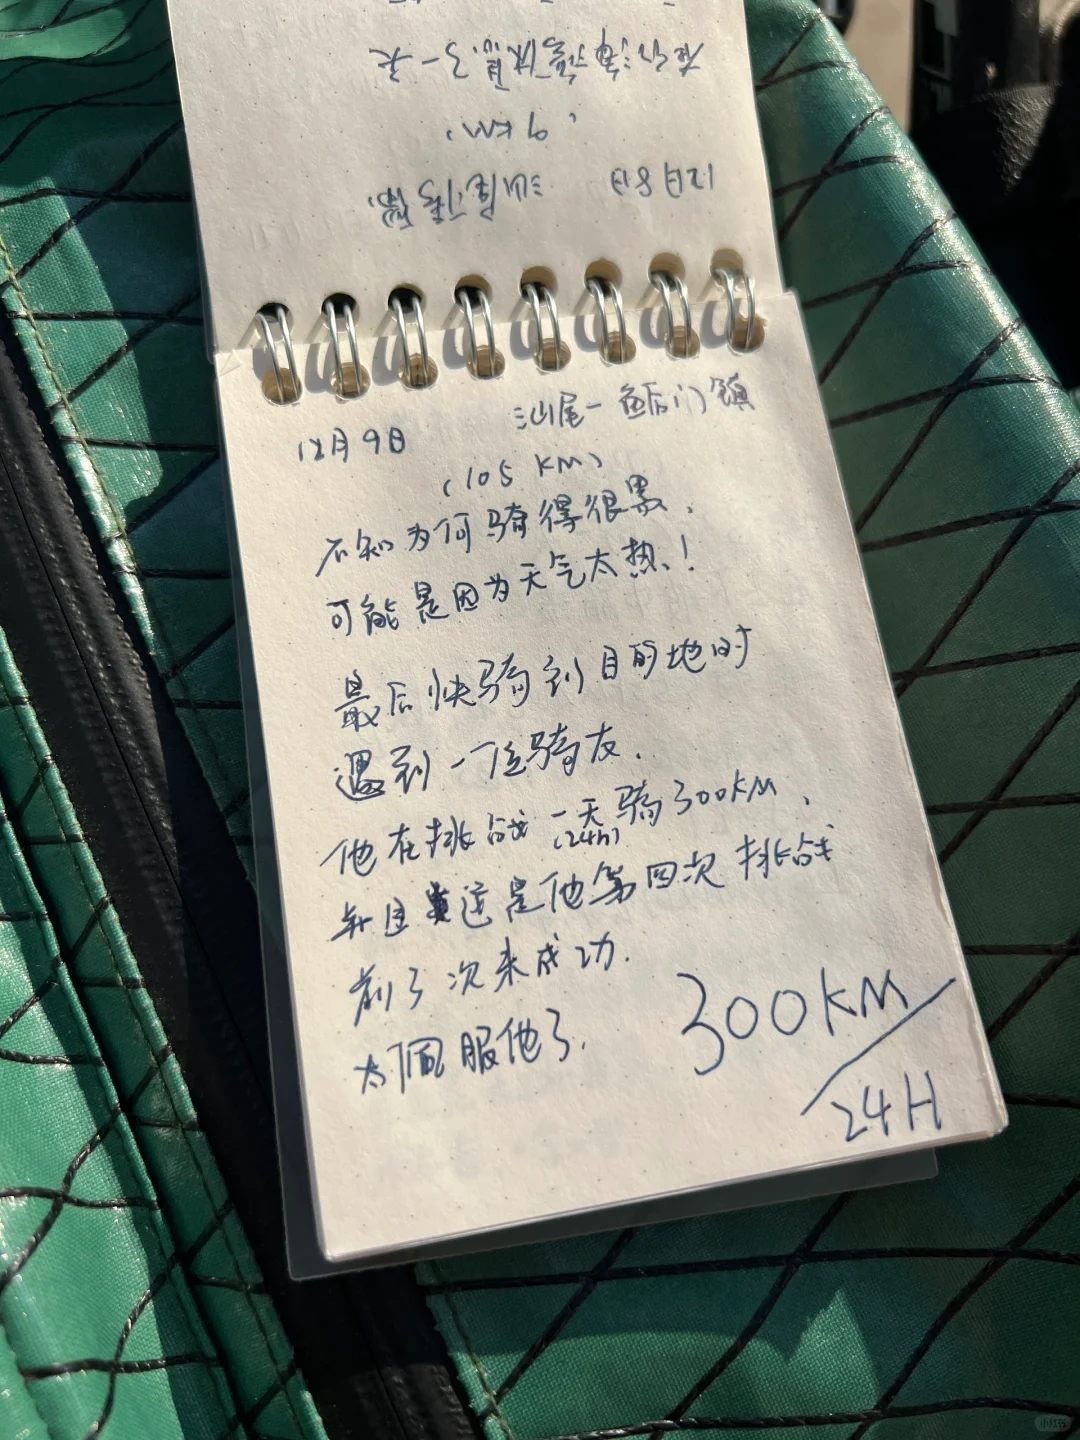 12月8日 汕尾停留
(9 KM)
休息了一天
12月9日 汕尾-鲘门镇
(105 KM)
不知为何骑得很累,
可能是因为天气太热!
最后快骑到目的地时
遇到一位骑友.
他在挑战一天骑300KM,
(24h)
并且这是他第四次挑战
前3次未成功.
太佩服他了.
300KM/
24H
小红书